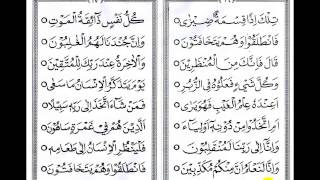 تِلْكَ إِذًا قِسْمَةٌ ضِيزَىٰ
فَانْطَلَقُوا وَهُمْ يَتَخَافَتُونَ
قَالَ فَإِنَّكَ مِنَ الْمُنْظَرِينَ
وَكُلُّ شَيْءٍ فَعَلُوهُ فِي الزُّبُرِ
أَعِنْدَهُ عِلْمُ الْغَيْبِ فَهُوَ يَرَىٰ
أَمِ اتَّخَذُوا مِنْ دُونِهِ أَوْلِيَاءَ
وَإِنَّا إِلَىٰ رَبِّنَا لَمُنْقَلِبُونَ
وَإِنَّا لَنَعْلَمُ أَنَّ مِنْكُمْ مُكَذِّبِينَ
كُلُّ نَفْسٍ ذَائِقَةُ الْمَوْتِ
وَإِنَّ جُنْدَنَا لَهُمُ الْغٰلِبُونَ
وَالْآخِرَةُ عِنْدَ رَبِّكَ لِلْمُتَّقِينَ
يَوْمَ يَتَذَكَّرُ الْإِنْسَانُ مَا سَعَىٰ
فَمَنْ شَاءَ اتَّخَذَ إِلَىٰ رَبِّهِ سَبِيلًا
الَّذِينَ هُمْ فِي غَمْرَةٍ سَاهُونَ
فَلْيَنْظُرِ الْإِنْسَانُ إِلَىٰ طَعَامِهِ
فَانْطَلَقُوا وَهُمْ يَتَخَافَتُونَ